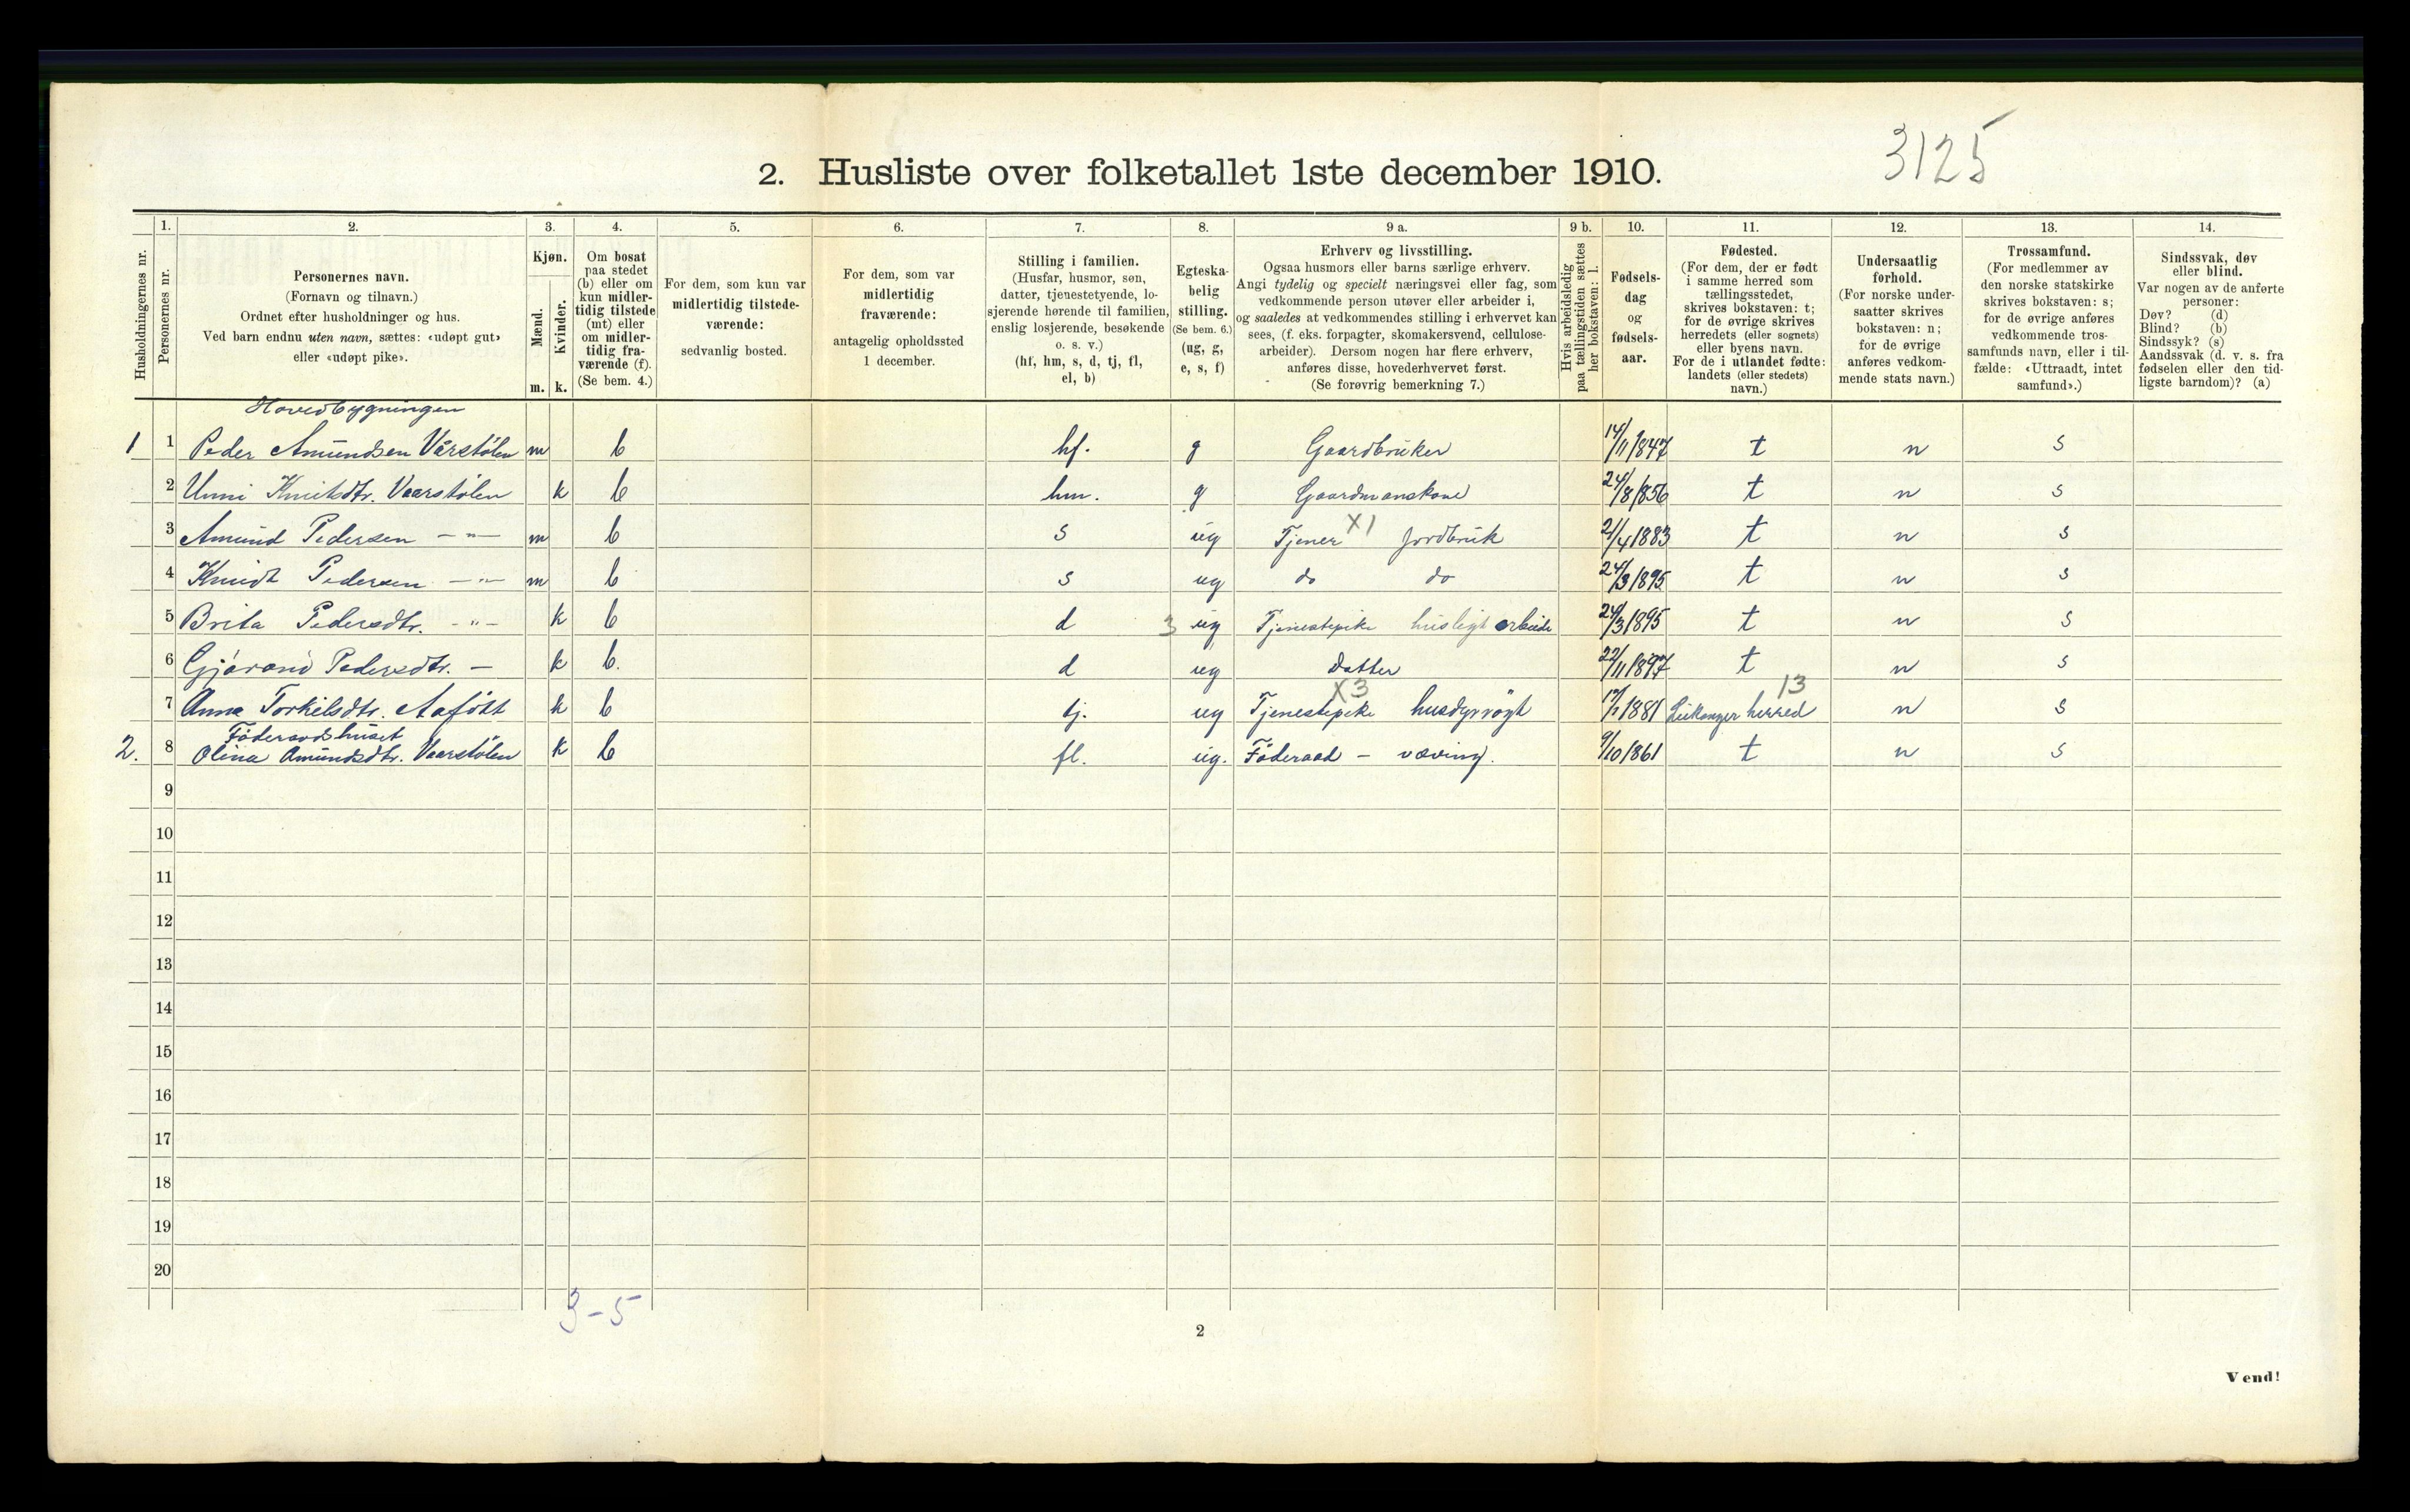 3125
2. Husliste over folketallet 1ste december 1910.
Husholdningernes nr.
1.
Personernes nr.
2.
Personernes navn.
(Fornavn og tilnavn.)
Ordnet efter husholdninger og hus.
Ved barn endnu uten navn, sættes: «udøpt gut»
eller «udøpt pike».
3.
Kjøn.
Mænd.
m.
Kvinder.
k.
4.
Om bosat
paa stedet
(b) eller om
kun midler-
tidig tilstede
(mt) eller
om midler-
tidig fra-
værende (f).
(Se bem. 4.)
5.
For dem, som kun var
midlertidig tilstede-
værende:
sedvanlig bosted.
6.
For dem, som var
midlertidig
fraværende:
antagelig opholdssted
1 december.
7.
Stilling i familien.
(Husfar, husmor, søn,
datter, tjenestetyende, lo-
sjerende hørende til familien,
enslig losjerende, besøkende
o. s. v.)
(hf, hm, s, d, tj, fl,
el, b)
8.
Egteska-
belig
stilling.
(Se bem. 6.)
(ug, g,
e, s, f)
9 a.
Erhverv og livsstilling.
Ogsaa husmors eller barns særlige erhverv.
Angi tydelig og specielt næringsvei eller fag, som
vedkommende person utøver eller arbeider i,
og saaledes at vedkommendes stilling i erhvervet kan
sees, (f. eks. forpagter, skomakersvend, cellulose-
arbeider). Dersom nogen har flere erhverv,
anføres disse, hovederhvervet først.
(Se forøvrig bemerkning 7.)
9 b.
Hvis arbeidsledig
paa tællingstiden sættes
her bokstaven: l.
10.
Fødsels-
dag
og
fødsels-
aar.
11.
Fødested.
(For dem, der er født
i samme herred som
tællingsstedet,
skrives bokstaven: t;
for de øvrige skrives
herredets (eller sognets)
eller byens navn.
For de i utlandet fødte:
landets (eller stedets)
navn.)
12.
Undersaatlig
forhold.
(For norske under-
saatter skrives
bokstaven: n;
for de øvrige
anføres vedkom-
mende stats navn.)
13.
Trossamfund.
(For medlemmer av
den norske statskirke
skrives bokstaven: s;
for de øvrige anføres
vedkommende tros-
samfunds navn, eller i til-
fælde: «Uttraadt, intet
samfund».)
14.
Sindssvak, døv
eller blind.
Var nogen av de anførte
personer:
Døv? (d)
Blind? (b)
Sindssyk? (s)
Aandssvak (d. v. s. fra
fødselen eller den tid-
ligste barndom)? (a)
Hovedbygningen
1 1 Peder Amundsen Vårstølen m b hf. g Gaardbruker 14/11 1847 t n s
2 Unni Knutsdtr. Vaarstølen k b hm. g Gaardmanskone 24/8 1856 t n s
X1
3 Amund Pedersen – " – m b s ug Tjener jordbruk 21/4 1883 t n s
4 Knudt Pedersen – " – m b s ug do do 24/3 1895 t n s
5 Brita Pedersdtr. – " – k b d 3 ug Tjenestepike husligt arbeide 24/3 1895 t n s
6 Gjørond Pedersdtr. – k b. d ug datter 22/11 1897 t n s
X3 13
7 Anna Torkilsdtr. k b tj. ug Tjenestepike husdyrrøgt 1881 Leikanger herred n s
Föderaadshuset
2. 8 Olina Amundsdtr. Vaarstølen k b fl. ug. Föderaad – væving. 9/10 1861 t n s
9
10
11
12
13
14
15
16
17
18
19
20
3–5
2
Vend!